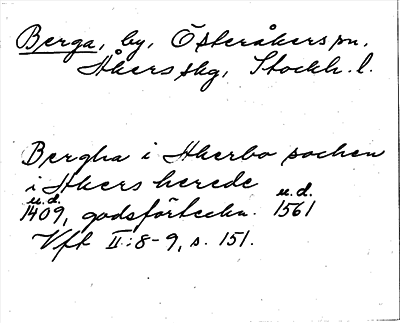 Berga, by, Österåkers sn,
Åkers skg, Stockh. l.
Bergha i Akerbo sochen
i Akers herede
u.d. u.d.
1409, godsförteckn. 1561
Vft II:8-9, s. 151.